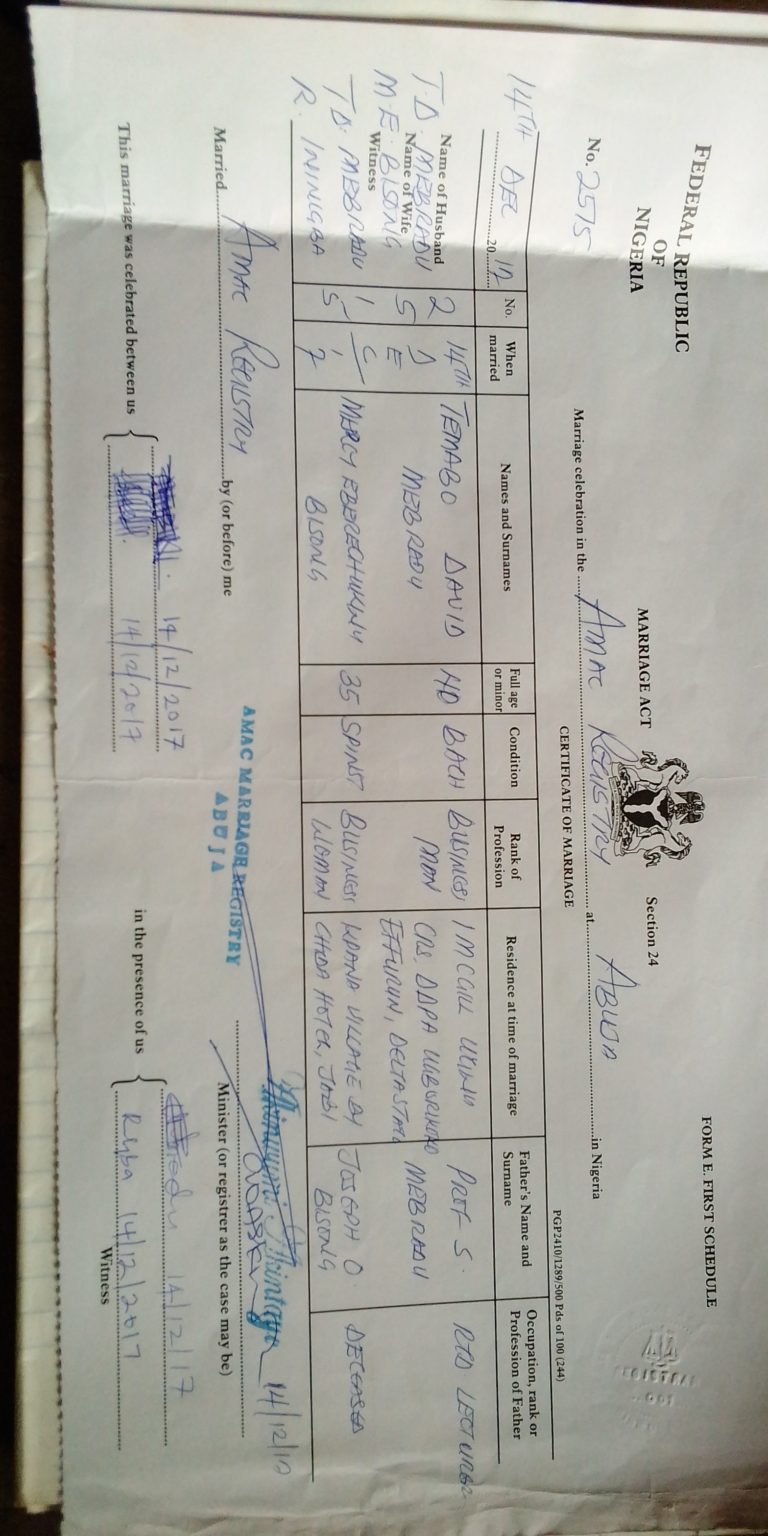 FORM E. FIRST SCHEDULE
FEDERAL REPUBLIC
OF
NIGERIA
MARRIAGE ACT
Section 24
No. 2515
CERTIFICATE OF MARRIAGE
PGP2410/1289/500 Pds of 100 (244)
Marriage celebration in the AMAC REGISTRY at ABUJA in Nigeria
14TH DEC 20 17
No.
When married
Names and Surnames
Full age or minor
Condition
Rank of Profession
Residence at time of marriage
Father's Name and Surname
Occupation, rank or Profession of Father
Name of Husband
T. D. MEBRADU
Name of Wife
M E. BISONG
Witness
T. D. MEBRADU
R. ININGBA
2 5 1 5
14TH D E C 17
TEMABO DAVID
MEBRADU
40
BACH
BUSINESS
MAN
1 MCGILL UKUWU
CRS, DDPA
EFFURUN, DELTA STATE
PROF S.
MEBRADU
RTD LECTURER
MERCY EBERECHUKWU
BISONG
35
SPINST
BUSINESS
WOMAN
KPANA VILLAGE BY
CHIDA HOTEL, JABI
JOSEPH O.
BISONG
DECEASED
Married AMAC REGISTRY by (or before) me
AMAC MARRIAGE REGISTRY
ABUJA
14/12/17
Minister (or registrer as the case may be)
This marriage was celebrated between us
14/12/2017
14/12/2017
in the presence of us
14/12/17
14/12/2017
Witness